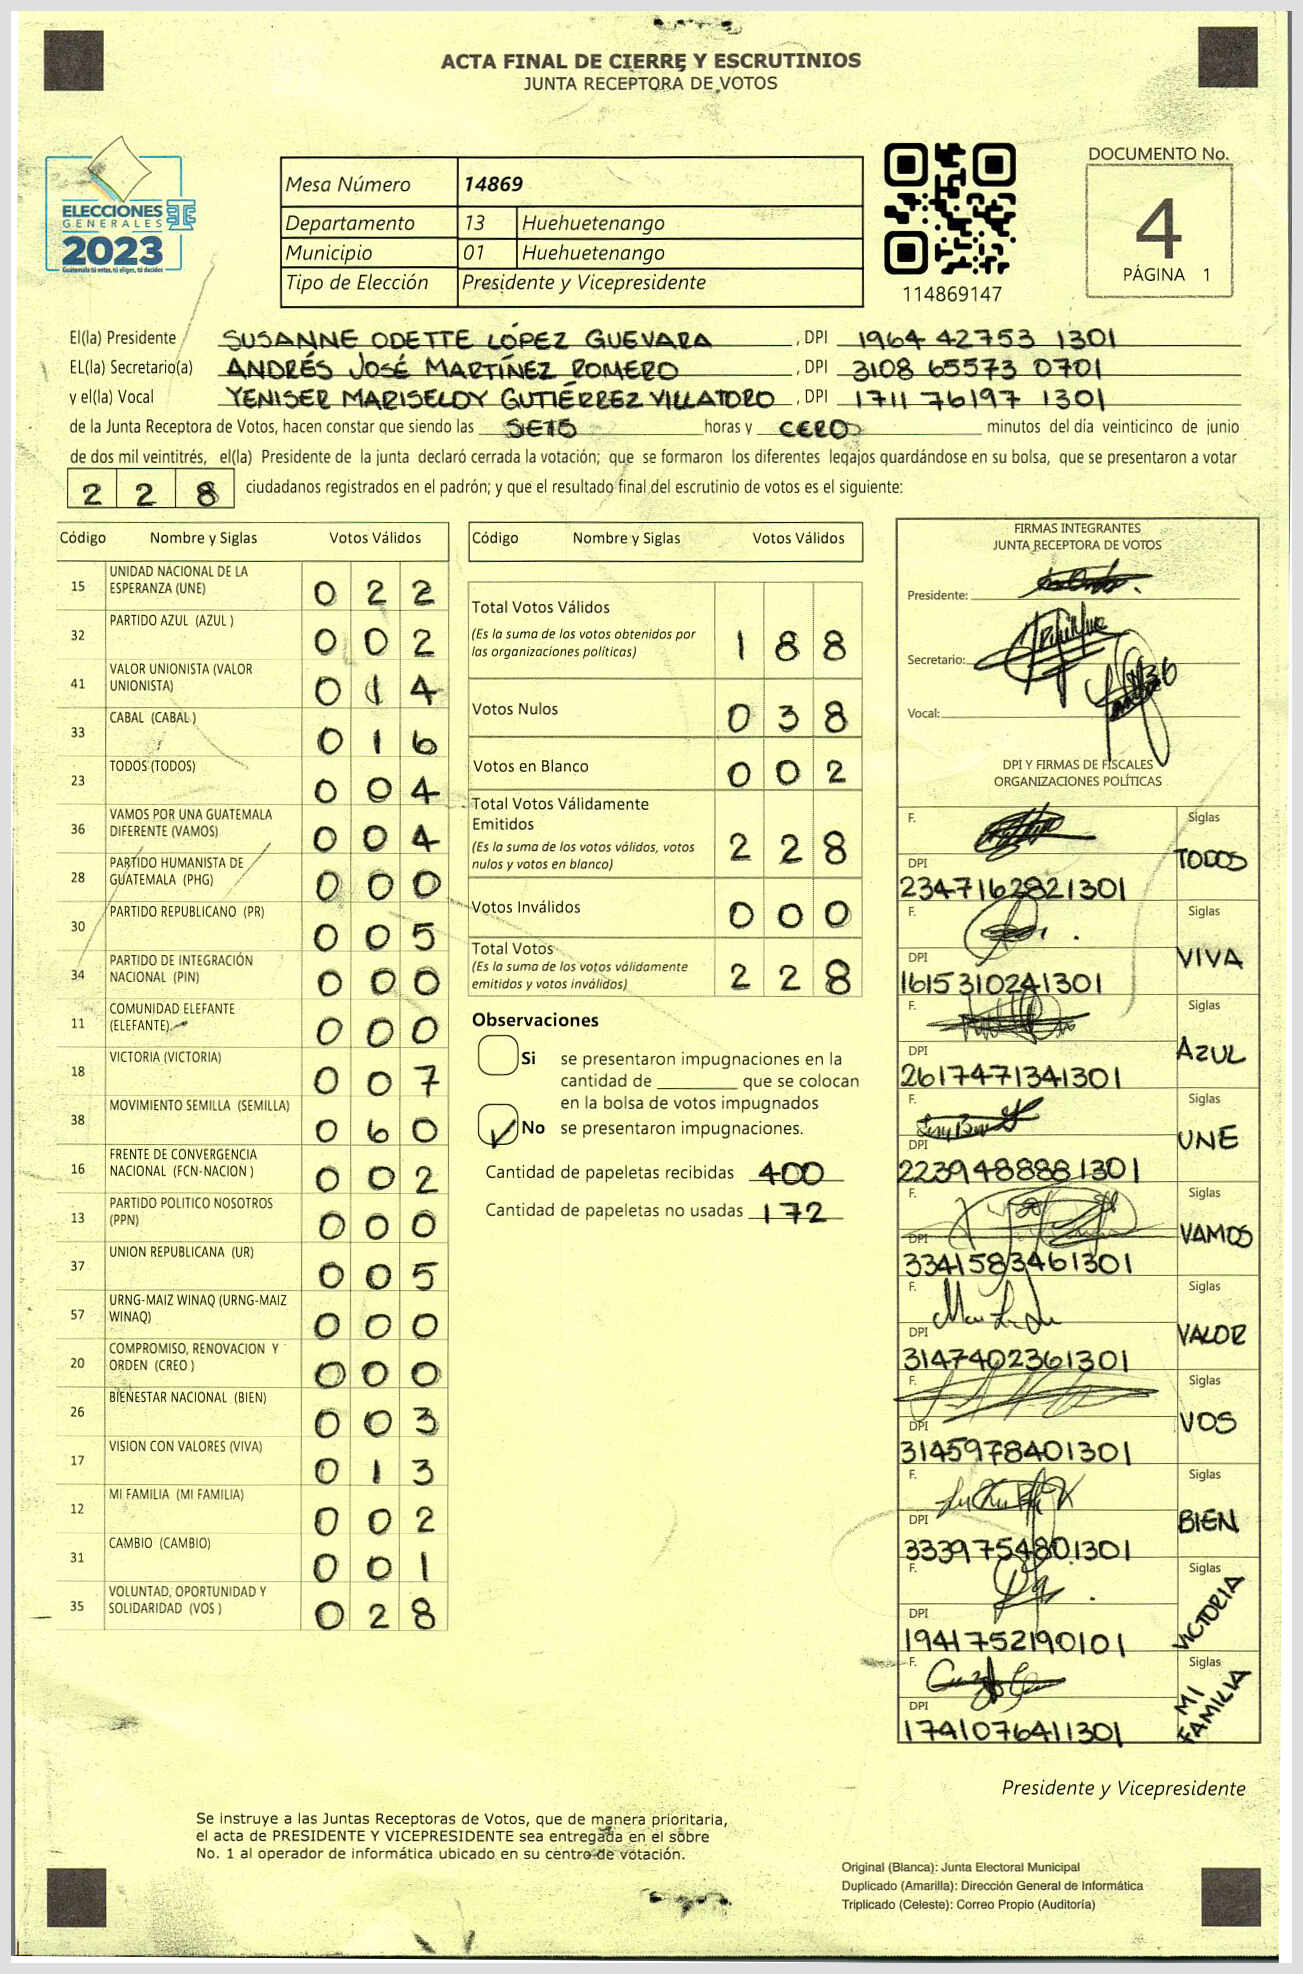 ACTA FINAL DE CIERRE Y ESCRUTINIOS
JUNTA RECEPTORA DE VOTOS
ELECCIONES
GENERALES
2023
Guatemala tú votas, tú eliges, tú decides
Mesa Número 14869
Departamento 13 Huehuetenango
Municipio 01 Huehuetenango
Tipo de Elección Presidente y Vicepresidente
114869147
DOCUMENTO No.
4
PÁGINA 1
El(la) Presidente SUSANNE ODETTE LÓPEZ GUEVARA, DPI 1964 42753 1301
EL(la) Secretario(a) ANDRÉS JOSÉ MARTÍNEZ ROMERO, DPI 3108 65573 0701
y el(la) Vocal YENISER MARISELDY GUTIÉRREZ VILLATORO, DPI 1711 76197 1301
de la Junta Receptora de Votos, hacen constar que siendo las SEIS horas y CERO minutos del día veinticinco de junio
de dos mil veintitrés, el(la) Presidente de la junta declaró cerrada la votación; que se formaron los diferentes legajos guardándose en su bolsa, que se presentaron a votar
228 ciudadanos registrados en el padrón; y que el resultado final del escrutinio de votos es el siguiente:
Código Nombre y Siglas Votos Válidos
15 UNIDAD NACIONAL DE LA
ESPERANZA (UNE) 022
32 PARTIDO AZUL (AZUL ) 002
41 VALOR UNIONISTA (VALOR
UNIONISTA) 014
33 CABAL (CABAL ) 016
23 TODOS (TODOS) 004
36 VAMOS POR UNA GUATEMALA
DIFERENTE (VAMOS) 004
28 PARTIDO HUMANISTA DE
GUATEMALA (PHG) 000
30 PARTIDO REPUBLICANO (PR) 005
34 PARTIDO DE INTEGRACIÓN
NACIONAL (PIN) 000
11 COMUNIDAD ELEFANTE
(ELEFANTE) 000
18 VICTORIA (VICTORIA) 007
38 MOVIMIENTO SEMILLA (SEMILLA) 060
16 FRENTE DE CONVERGENCIA
NACIONAL (FCN-NACION ) 002
13 PARTIDO POLITICO NOSOTROS
(PPN) 000
37 UNION REPUBLICANA (UR) 005
57 URNG-MAIZ WINAQ (URNG-MAIZ
WINAQ) 000
20 COMPROMISO, RENOVACION Y
ORDEN (CREO ) 000
26 BIENESTAR NACIONAL (BIEN) 003
17 VISION CON VALORES (VIVA) 013
12 MI FAMILIA (MI FAMILIA) 002
31 CAMBIO (CAMBIO) 001
35 VOLUNTAD, OPORTUNIDAD Y
SOLIDARIDAD (VOS ) 028
Código Nombre y Siglas Votos Válidos
Total Votos Válidos
(Es la suma de los votos obtenidos por
las organizaciones políticas) 188
Votos Nulos 038
Votos en Blanco 002
Total Votos Válidamente
Emitidos
(Es la suma de los votos válidos, votos
nulos y votos en blanco) 228
Votos Inválidos 000
Total Votos
(Es la suma de los votos válidamente
emitidos y votos inválidos) 228
Observaciones
Si se presentaron impugnaciones en la
cantidad de ________ que se colocan
en la bolsa de votos impugnados
No se presentaron impugnaciones.
Cantidad de papeletas recibidas 400
Cantidad de papeletas no usadas 172
FIRMAS INTEGRANTES
JUNTA RECEPTORA DE VOTOS
Presidente:
Secretario:
Vocal:
DPI Y FIRMAS DE FISCALES
ORGANIZACIONES POLÍTICAS
F. Siglas
TODOS
DPI
2347162821301
F. Siglas
VIVA
DPI
1615310241301
F. Siglas
AZUL
DPI
2617471341301
F. Siglas
UNE
DPI
2239488881301
F. Siglas
VAMOS
DPI
3341583461301
F. Siglas
VALOR
DPI
3147402361301
F. Siglas
VOS
DPI
3145978401301
F. Siglas
BIEN
DPI
3339754801301
F. Siglas
VICTORIA
DPI
1941752190101
F. Siglas
MI
FAMILIA
DPI
1741076411301
Presidente y Vicepresidente
Se instruye a las Juntas Receptoras de Votos, que de manera prioritaria,
el acta de PRESIDENTE Y VICEPRESIDENTE sea entregada en el sobre
No. 1 al operador de informática ubicado en su centro de votación.
Original (Blanca): Junta Electoral Municipal
Duplicado (Amarilla): Dirección General de Informática
Triplicado (Celeste): Correo Propio (Auditoría)